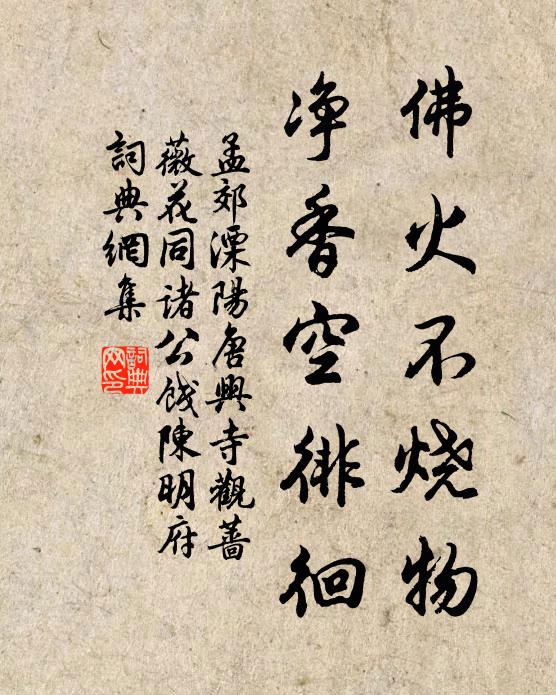 佛火不烧物
净香空徘徊
孟郊溧陽唐興寺觀薔
薇花同诸公餞陳明府
詞典網集
詞典
网印